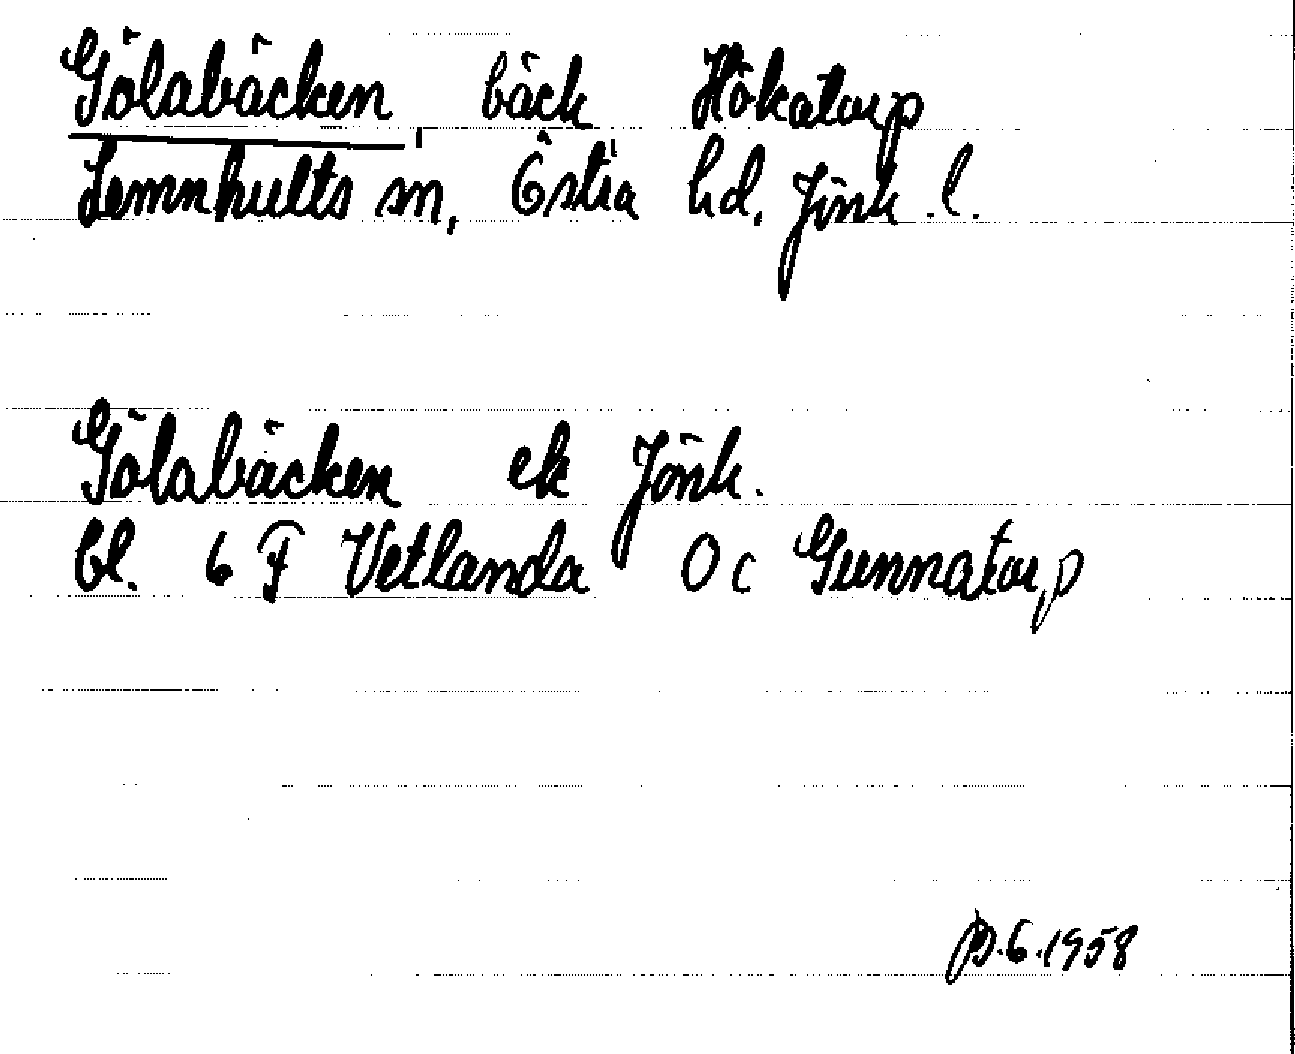 Gölabäcken, bäck Hökatorp
Lemnhults sn, Östra hd, Jönk.l.
Gölabäcken ek Jönk.
bl. 6 F Vetlanda 0c Gunnatorp
.6.1958